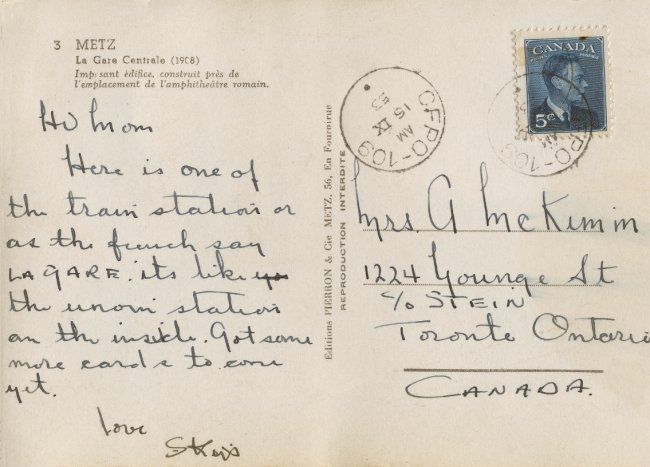 3 METZ
La Gare Centrale (1908)
Imposant édifice, construit près de
l'emplacement de l'amphithéâtre romain.
Hi Mom
Here is one of
the train station or
as the french say
LA GARE. its like
the union station
on the inside. Got some
more cards to come
yet.
love
Editions PIERRON & Cie METZ, 56, En Fournirue
REPRODUCTION INTERDITE
CFPO-109
AM
15 IX
53
CANADA
5¢
CFPO-109
AM
Mrs. A McKimm
1224 Younge St
c/o STEIN
Toronto Ontario
CANADA.